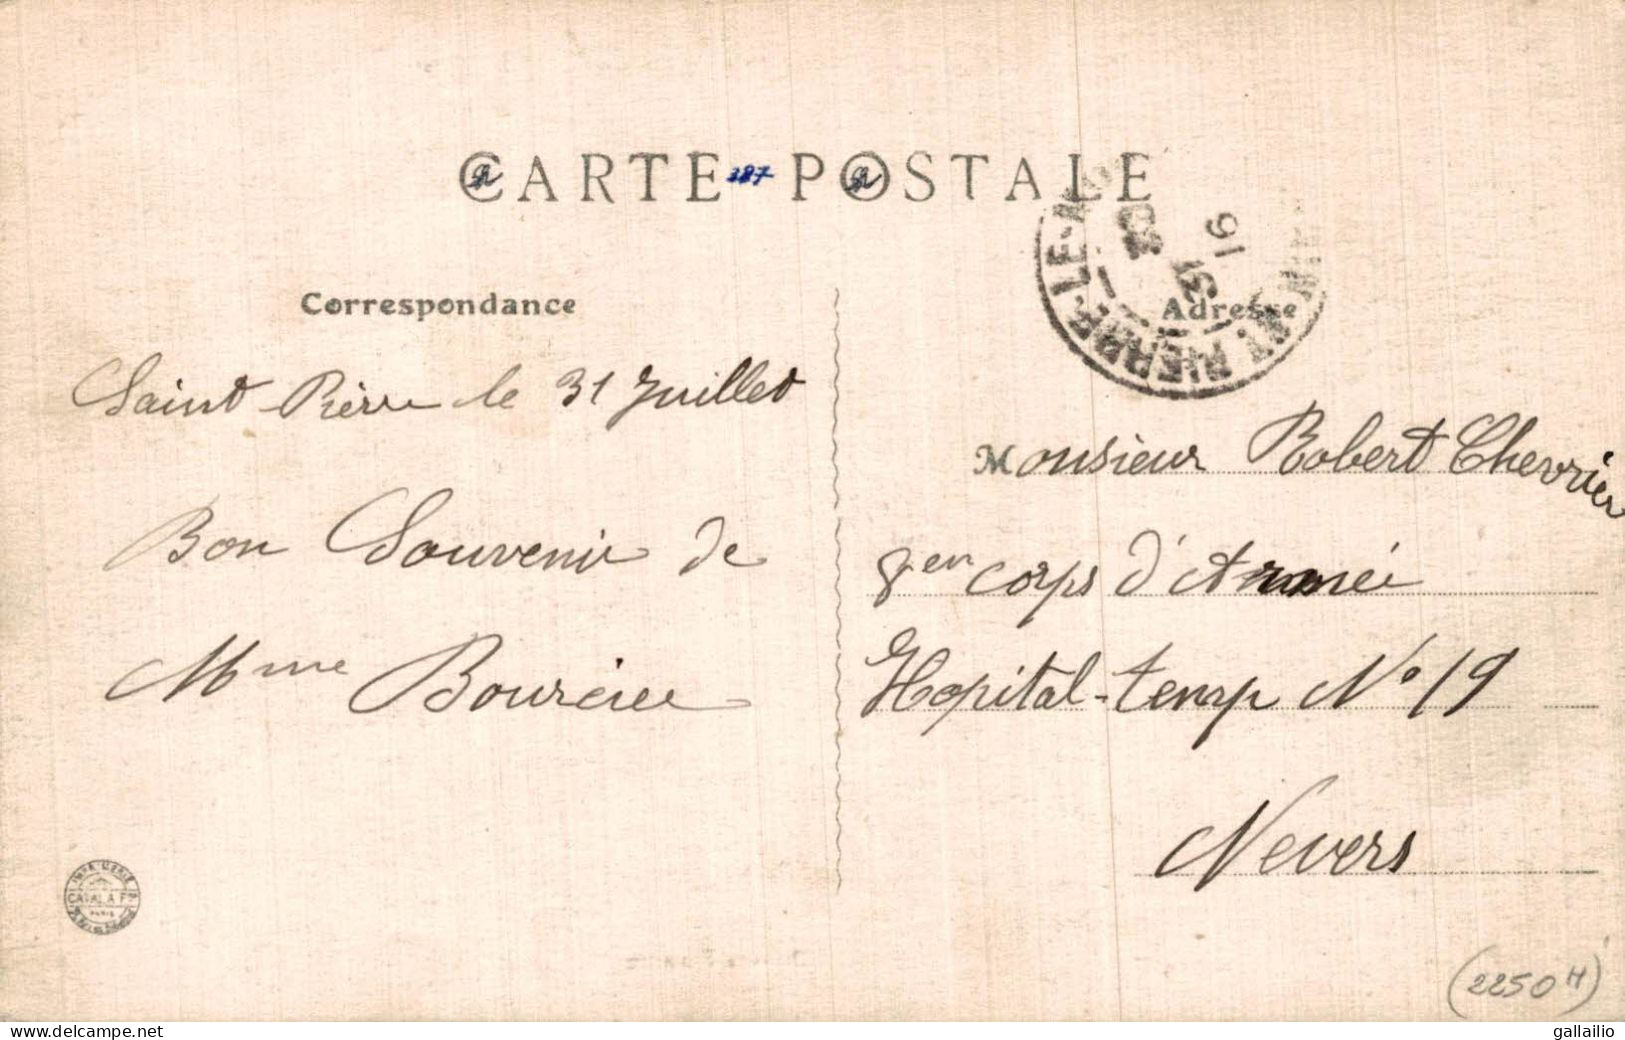 CARTE POSTALE
187
Correspondance
Saint Pierre le 31 Juillet
Bon Souvenir de
Mme
Adresse
PIERRE-LE-M
16
31
Monsieur Robert Chevrier
8en corps d'Armée
Hopital-temp No 19
Nevers
IMPRIMERIE
CATALA Fres
PARIS
(2250H)
www.delcampe.net
gallailio